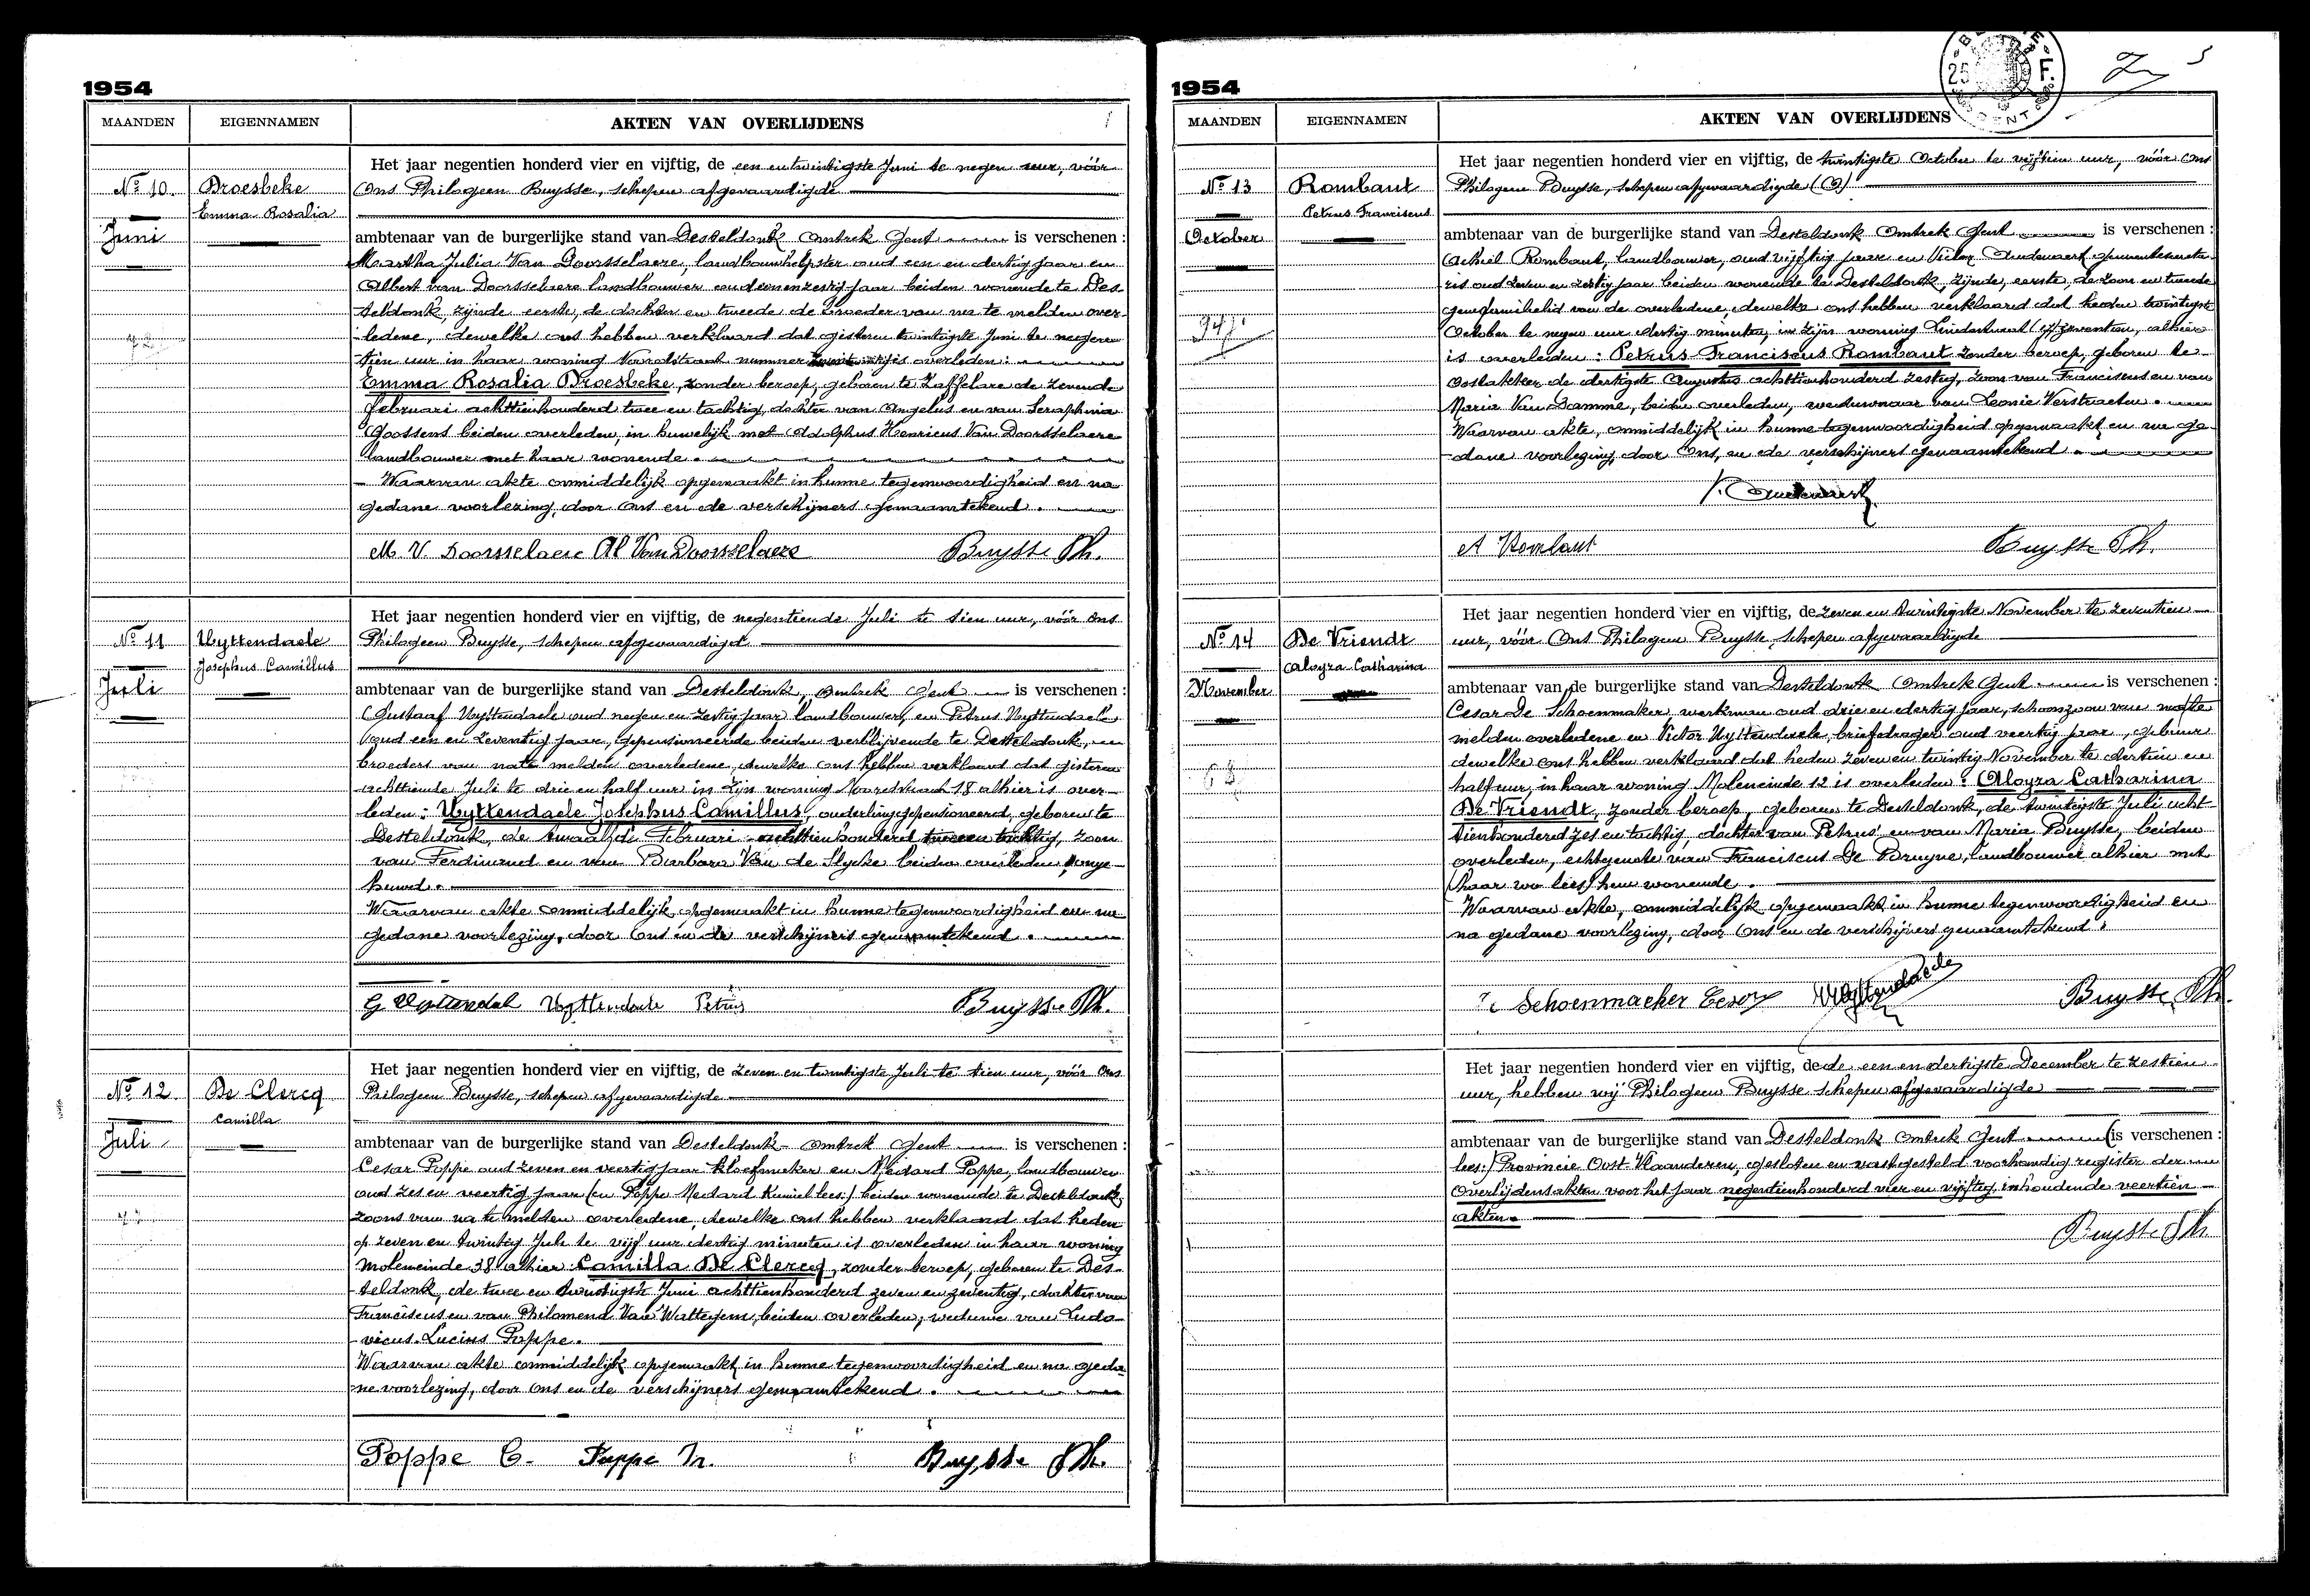 1954
MAANDEN EIGENNAMEN AKTEN VAN OVERLIJDENS
Het jaar negentien honderd vier en vijftig, de een en twintigste Juni te negen uur, vóór
No 10. Droesbeke Ons Philogeen Buysse, schepen afgevaardigde
Emma Rosalia
Juni ambtenaar van de burgerlijke stand van Desteldonk Omtrek Gent is verschenen :
Martha Julia Van Doorsselaere, landbouwhelpster oud een en dertig jaar en
Albert van Doorsselaere landbouwer oud en zestig jaar beiden wonende te Des-
teldonk, zijnde eerste, de dochter en tweede de broeder van na te melden over-
ledene, dewelke ons hebben verklaard dat gisteren twintigste Juni te negen
tien uur in haar woning nummer is overleden:
Emma Rosalia Droesbeke, zonder beroep, geboren te Zaffelare de zevende
februari achttienhonderd twee en tachtig, dochter van Angelus en van Seraphina
Goossens beiden overleden, in huwelijk met Adolphus Henricus Van Doorsselaere
landbouwer met haar wonende.
Waarvan akte onmiddelijk opgemaakt in hunne tegenwoordigheid en na
gedane voorlezing, door ons en de verschijners genaamtekend.
M. V. Doorsselaere Al Van Doorsselaere Buysse Ph.
Het jaar negentien honderd vier en vijftig, de negentiende Juli te tien uur, vóór ons
No 11 Uyttendaele Philogeen Buysse, schepen afgevaardigd
Josephus Camillus
Juli ambtenaar van de burgerlijke stand van Desteldonk, omtrek Gent is verschenen :
Gustaaf Uyttendaele oud negen en zestig jaar landbouwer, en Petrus Uyttendaele
oud een en zeventig jaar, gepensioneerde beiden verblijvende te Desteldonk,
broeders van na te melden overledene, dewelke ons hebben verklaard dat gisteren
achttiende Juli te drie en half uur in zijn woning Noordstraat 18 alhier is over-
leden: Uyttendaele Josephus Camillus, ouderlinggepensioneerd, geboren te
Desteldonk, de twaalfde Februari achttienhonderd twee en tachtig, zoon
van Ferdinand en van Barbara Van de Slycke beiden overleden, onge-
huwd.
Waarvan akte onmiddelijk, opgemaakt in hunne tegenwoordigheid en na
gedane voorlezing, door ons en de verschijners genaamtekend.
G Uyttendael Uyttendaele Petrus Buysse Ph.
Het jaar negentien honderd vier en vijftig, de zeven en twintigste Juli te tien uur, vóór Ons
No 12. De Clercq Philogeen Buysse, schepen afgevaardigde
Camilla
Juli ambtenaar van de burgerlijke stand van Desteldonk - omtrek Gent is verschenen :
Cesar Poppe oud zeven en veertig jaar kloefmaker en Medard Poppe, landbouwer
oud zes en veertig jaar (en Poppe Medard Kamiel lees:) beiden wonende te Desteldonk,
zoons van na te melden overledene, dewelke ons hebben verklaard dat heden
op zeven en twintig Juli te vijf uur dertig minuten is overleden in haar woning
Moleneinde 38 alhier: Camilla De Clercq, zonder beroep, geboren te Des-
teldonk, de twee en twintigste Juni achttienhonderd zeven en zeventig, dochter van
Franciscus en van Philomena Van Wattegem, beiden overleden, weduwe van Ludo-
vicus Lucius Poppe.
Waarvan akte onmiddelijk opgemaakt in hunne tegenwoordigheid en na geda-
ne voorlezing, door ons en de verschijners genaamtekend.
Poppe C. Poppe M. Buysse Ph.
1954
MAANDEN EIGENNAMEN AKTEN VAN OVERLIJDENS
Het jaar negentien honderd vier en vijftig, de twintigste October te vijftien uur, vóór ons
No 13 Rombaut Philogeen Buysse, schepen afgevaardigde
Petrus Franciscus
October ambtenaar van de burgerlijke stand van Desteldonk Omtrek Gent is verschenen :
Achiel Rombaut, landbouwer, oud vijftig jaar en Victor Audenaert gemeentesecreta-
ris oud zeven en zestig jaar beiden wonende te Desteldonk, zijnde, eerste, de zoon en tweede
van de overledene, dewelke ons hebben verklaard dat heden twintigste
October te negen uur dertig minuten, in zijn woning Lindestraat zeventien, alhier
is overleden: Petrus Franciscus Rombaut zonder beroep, geboren te
Oostakker de dertigste Augustus achttienhonderd zestig, zoon van Franciscus en van
Maria Van Damme, beiden overleden, weduwnaar van Leonie Verstraeten.
Waarvan akte, onmiddelijk in hunne tegenwoordigheid opgemaakt en na ge-
dane voorlezing, door Ons, en de verschijners genaamtekend.
A Rombaut Buysse Ph.
Het jaar negentien honderd vier en vijftig, de zeven en twintigste November te zeventien
No 14 De Vriendt uur, vóór Ons Philogeen Buysse, schepen afgevaardigde
Aloyza Catharina
November ambtenaar van de burgerlijke stand van Desteldonk Omtrek Gent is verschenen :
Cesar De Schoenmaker, werkman oud drie en dertig jaar, schoonzoon van na te
melden overledene en Victor Uyttendaele, briefdrager oud veertig jaar, gebuur
dewelke ons hebben verklaard dat heden zeven en twintig November te dertien en
half uur, in haar woning Moleneinde 12 is overleden: Aloyza Catharina
De Vriendt, zonder beroep, geboren te Desteldonk, de twintigste Juli acht-
tienhonderd zes en tachtig, dochter van Petrus en van Maria Buysse, beiden
overleden, echtgenote van Franciscus De Bruyne, landbouwer alhier met
(haar wo lees) hem wonende.
Waarvan akte, onmiddelijk opgemaakt, in hunne tegenwoordigheid en
na gedane voorlezing, door Ons en de verschijners genaamtekend.
Schoenmaeker Cesar Uyttendaele Buysse Ph.
Het jaar negentien honderd vier en vijftig, de de een en dertigste December te zestien
uur, hebben wij Philogeen Buysse schepen afgevaardigde
ambtenaar van de burgerlijke stand van Desteldonk Omtrek Gent (is verschenen :
lees:) Provincie Oost-Vlaanderen, gesloten en vastgesteld voorhandig register der
Overlijdensakten voor het jaar negentienhonderd vier en vijftig, inhoudende veertien
akten.
Buysse Ph.